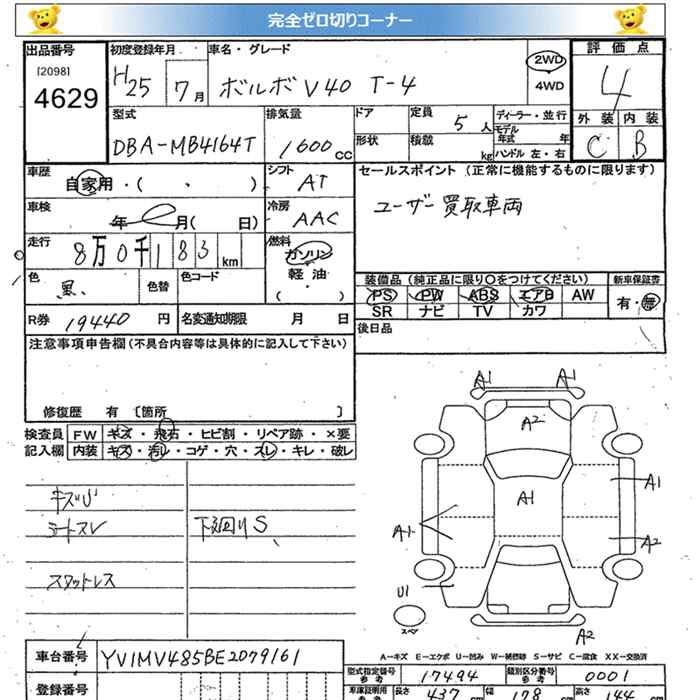 完全ゼロ切りコーナー
出品番号 初度登録年月 車名・グレード 評価点
[2098] 4629 H25 7月 ボルボV40 T-4 2WD 4WD 4
型式 排気量 ドア 定員 5人 ディーラー・並行 外装 内装
DBA-MB4164T 1600cc 形状 積載 kg モデル年式 年 ハンドル 左・右 C B
車歴 自家用・( ・ ) シフト AT セールスポイント (正常に機能するものに限ります)
車検 年 月( 日) 冷房 AAC ユーザー買取車両
走行 8万0千183km 燃料 ガソリン 軽油 ( )
色 黒 色替 色コード 装備品 (純正品に限り○をつけてください) 新車保証書
PS PW ABS エアB AW 有・無
SR ナビ TV カワ
R券 19440円 名変通知期限 月 日 後日品
注意事項申告欄 (不具合内容等は具体的に記入して下さい)
修復歴 有 〔箇所 〕
検査員 FW キズ・飛石・ヒビ割・リペア跡・×要
記入欄 内装 キズ・汚レ・コゲ・穴・スレ・キレ・破レ
シートスレ 下廻りS
スタットレス
A1 A1
A2
A1
A1
A1
A2
U1
スペア
A2
A-キズ E-エクボ U-凹み W-補修跡 S-サビ C-腐食 XX-交換済
車台番号 YV1MV485BE2079161
型式指定番号 参考 17494 類別区分番号 参考 0001
登録番号 車庫証明用 参考 長さ 437cm 幅 178cm 高さ 144cm